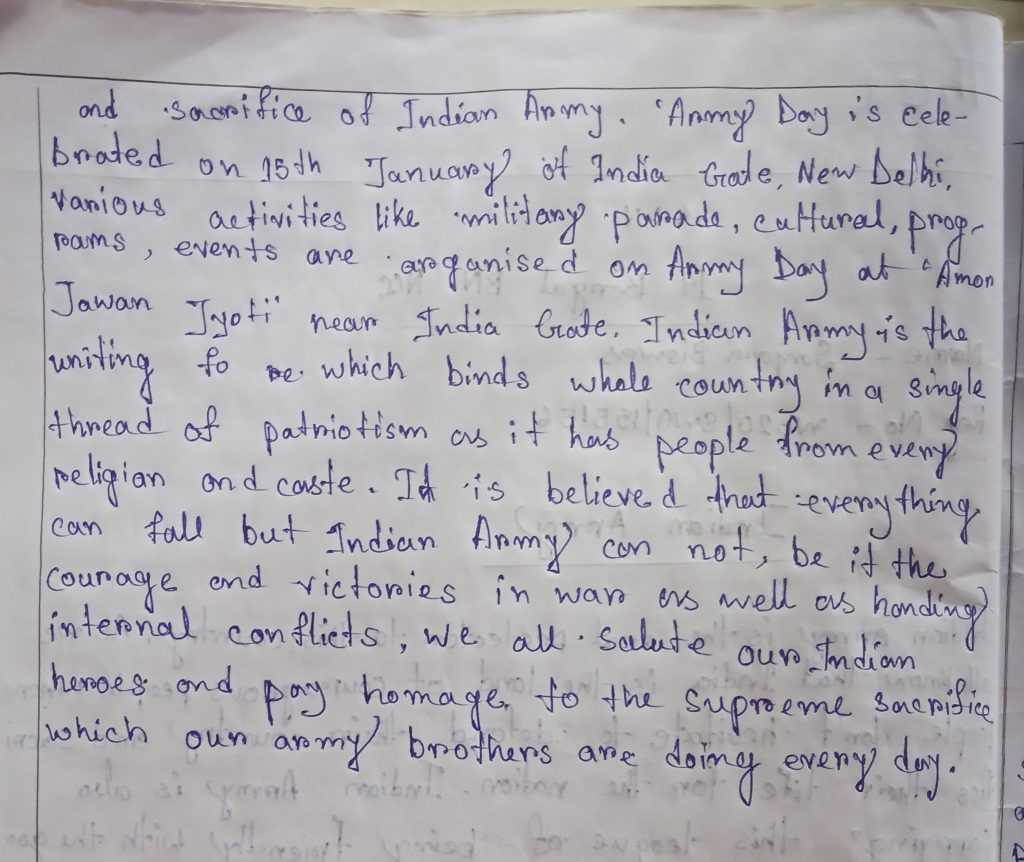 and sacrifice of Indian Army. 'Army Day is cele-
brated on 15th January of India Gate, New Delhi.
Various activities like military parade, cultural, prog-
rams, events are organised on Army Day at "Amar
Jawan Jyoti" near India Gate. Indian Army is the
uniting fo re which binds whole country in a single
thread of patriotism as it has people from every
religian and caste. It is believed that everything
can fall but Indian Army can not, be it the
courage and victories in war as well as handing
internal conflicts, we all salute our Indian
heroes and pay homage to the supreme sacrifice
which our army brothers are doing every day.